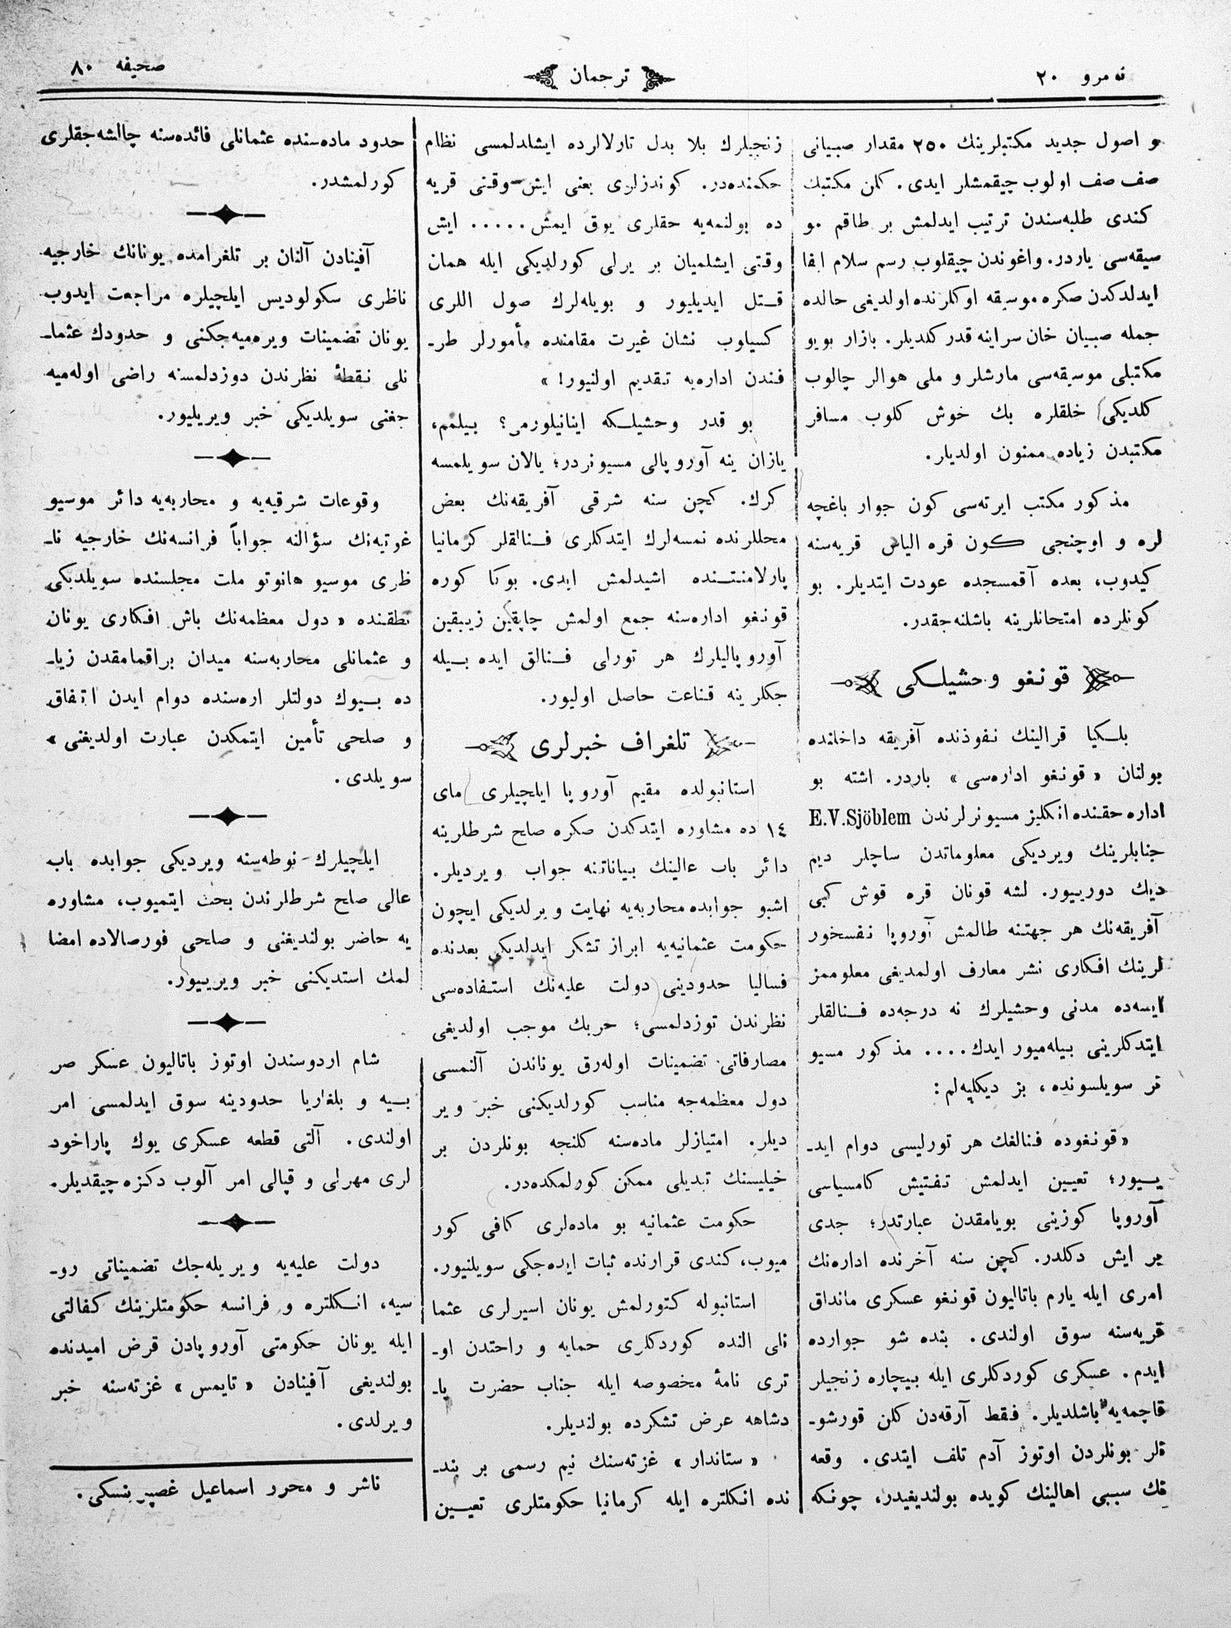 نه‌مرو ٢٠
ترجمان
صحيفه ٨٠
و اصول جديد مكتبلرينك ٢٥٠ مقدار صبيانى
صف صف اولوب چيقمشلر ايدى. كلن مكتبك
كندى طلبه‌سندن ترتيب ايدلمش بر طاقم مو
سيقه‌سى ياردر. واغوندن چيقلوب رسم سلام ايفا
ايدلدكدن صكره موسيقه اوكلرنده اولديغى حالده
جمله صبيان خان سراينه قدر كلديلر. بازار بويو
مكتبلى موسيقه‌سى مارشلر و ملى هوالر چالوب
كلديكى خلقلره بك خوش كلوب مسافر
مكتبدن زياده ممنون اولديلر.
مذكور مكتب ايرته‌سى كون جوار باغچه
لره و اوچنجى كون قره الياس قريه‌سنه
كيدوب، بعده آقمسجده عودت ايتديلر. بو
كونلرده امتحانلرينه باشلنه‌جقدر.
قونغو وحشيلكى
بلكيا قرالينك نفوذنده آفريقه داخلنده
بولنان «قونغو اداره‌سى» باردر. اشته بو
اداره حقنده انكليز مسيونرلرندن E.V.Sjöblem
جنابلرينك ويرديكى معلوماتدن ساچلر ديم
ديك دورييور. لشه قونان قره قوش كبى
آفريقه‌نك هر جهتنه طالمش آوروپا نفسخور
لرينك افكارى نشر معارف اولمديغى معلوممز
ايسه‌ده مدنى وحشيلرك نه درجه‌ده فنالقلر
ايتدكلرينى بيله‌ميور ايدك.... مذكور مسيو
نر سويلسونده، بز ديكليه‌لم:
«قونغوده فنالغك هر تورليسى دوام ايد-
ييور؛ تعيين ايدلمش تفتيش كامسياسى
آوروپا كوزينى بويامقدن عبارتدر؛ جدى
بر ايش دكلدر. كچن سنه آخرنده اداره‌نك
امرى ايله يارم باتاليون قونغو عسكرى مانداق
قريه‌سنه سوق اولندى. بنده شو جوارده
ايدم. عسكرى كوردكلرى ايله بيچاره زنجيلر
قاچمه‌يه باشلديلر. فقط آرقه‌دن كلن قورشو-
نلر بونلردن اوتوز آدم تلف ايتدى. وقعه
نك سببى اهالينك كويده بولنديغيدر، چونكه
زنجيلرك بلا بدل تارلالرده ايشلدلمسى نظام
حكمنده‌در. كوندزلرى يعنى ايش وقتى قريه
ده بولنمه‌يه حقلرى يوق ايمش..... ايش
وقتى ايشلميان بر يرلى كورلديكى ايله همان
قتل ايديليور و بويله‌لرك صول اللرى
كسيلوب نشان غيرت مقامنده مأمورلر طر-
فندن اداره‌به تقديم اولنيور! »
بو قدر وحشيلكه اينانيلورمى؟ بيلمم،
يازان ينه آوروپالى مسيونردر؛ يالان سويلمسه
كرك. كچن سنه شرقى آفريقه‌نك بعض
محللرنده نمسه‌لرك ايتدكلرى فنالقلر كرمانيا
پارلامنتنده اشيدلمش ايدى. بوكا كوره
قونغو اداره‌سنه جمع اولمش چاپقين زيپقين
آوروپاليلرك هر تورلى فنالق ايده بيله
جكلرينه قناعت حاصل اوليور.
تلغراف خبرلرى
استانبولده مقيم آوروپا ايلچيلرى ماى
١٤ ده مشاوره ايتدكدن صكره صلح شرطلرينه
دائر باب عالينك بياناتنه جواب ويرديلر.
اشبو جوابده محاربه‌يه نهايت ويرلديكى ايچون
حكومت عثمانيه‌يه ابراز تشكر ايدلديكى بعدنده
فساليا حدودينى دولت عليه‌نك استفاده‌سى
نظرندن توزدلمسى؛ حربك موجب اولديغى
مصارفاتى تضمينات اوله‌رق يوناندن آلنمسى
دول معظمه‌جه مناسب كورلديكنى خبر وير
ديلر. امتيازلر ماده‌سنه كلنجه بونلردن بر
خيليسنك تبديلى ممكن كورلمكده‌در.
حكومت عثمانيه بو ماده‌لرى كافى كور
ميوب، كندى قرارنده ثبات ايده‌جكى سويلنيور.
استانبوله كتورلمش يونان اسيرلرى عثما
نلى النده كوردكلرى حمايه و راحتدن او-
ترى نامۀ مخصوصه ايله جناب حضرت پا-
دشاهه عرض تشكرده بولنديلر.
«ستاندار» غزته‌سنك نيم رسمى بر بند-
نده انكلتره ايله كرمانيا حكومتلرى تعيين
حدود ماده‌سنده عثمانلى فائده‌سنه چالشه‌جقلرى
كورلمشدر.
آفينادن آلنان بر تلغرامده يونانك خارجيه
ناظرى سكولوديس ايلچيلره مراجعت ايدوب
يونان تضمينات ويره‌ميه‌جكنى و حدودك عثما-
نلى نقطۀ نظرندن دوزدلمسنه راضى اوله‌ميه
جغنى سويلديكى خبر ويريليور.
وقوعات شرقيه‌يه و محاربه‌يه دائر موسيو
غوتيه‌نك سؤالنه جواباً فرانسه‌نك خارجيه نا-
ظرى موسيو هانوتو ملت مجلسنده سويلديكى
نطقنده «دول معظمه‌نك باش افكارى يونان
و عثمانلى محاربه‌سنه ميدان براقمامقدن زيا-
ده بيوك دولتلر اره‌سنده دوام ايدن اتفاق
و صلحى تأمين ايتمكدن عبارت اولديغنى»
سويلدى.
ايلچيلرك نوطه‌سنه ويرديكى جوابده باب
عالى صلح شرطلرندن بحث ايتميوب، مشاوره
يه حاضر بولنديغنى و صلحى فورصالاده امضا
لمك استديكنى خبر ويرييور.
شام اردوسندن اوتوز باتاليون عسكر صر
بيه و بلغاريا حدودينه سوق ايدلمسى امر
اولندى. آلتى قطعه عسكرى يوك پاراخود
لرى مهرلى و قپالى امر آلوب دكزه چيقديلر.
دولت عليه‌يه ويريله‌جك تضميناتى رو-
سيه، انكلتره و فرانسه حكومتلرينك كفالتى
ايله يونان حكومتى آوروپادن قرض اميدنده
بولنديغى آفينادن «تايمس» غزته‌سنه خبر
ويرلدى.
ناشر و محرر اسماعيل غصپرينسكى.